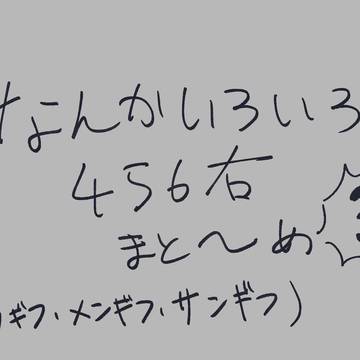 なんかいろいろ
456右
まと〜め
ギフ・メンギフ・サンギフ)